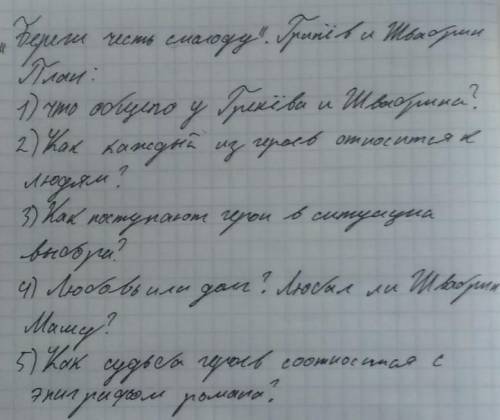 „Береги честь смолоду". Гринёв и Швабрин
План:
1) Что общего у Гринёва и Швабрина?
2) Как каждый из героев относится к
людям?
3) Как поступают герои в ситуации
выбора?
4) Любовь или долг? Любил ли Швабрин
Машу?
5) Как судьба героев соотносится с
эпиграфом романа?